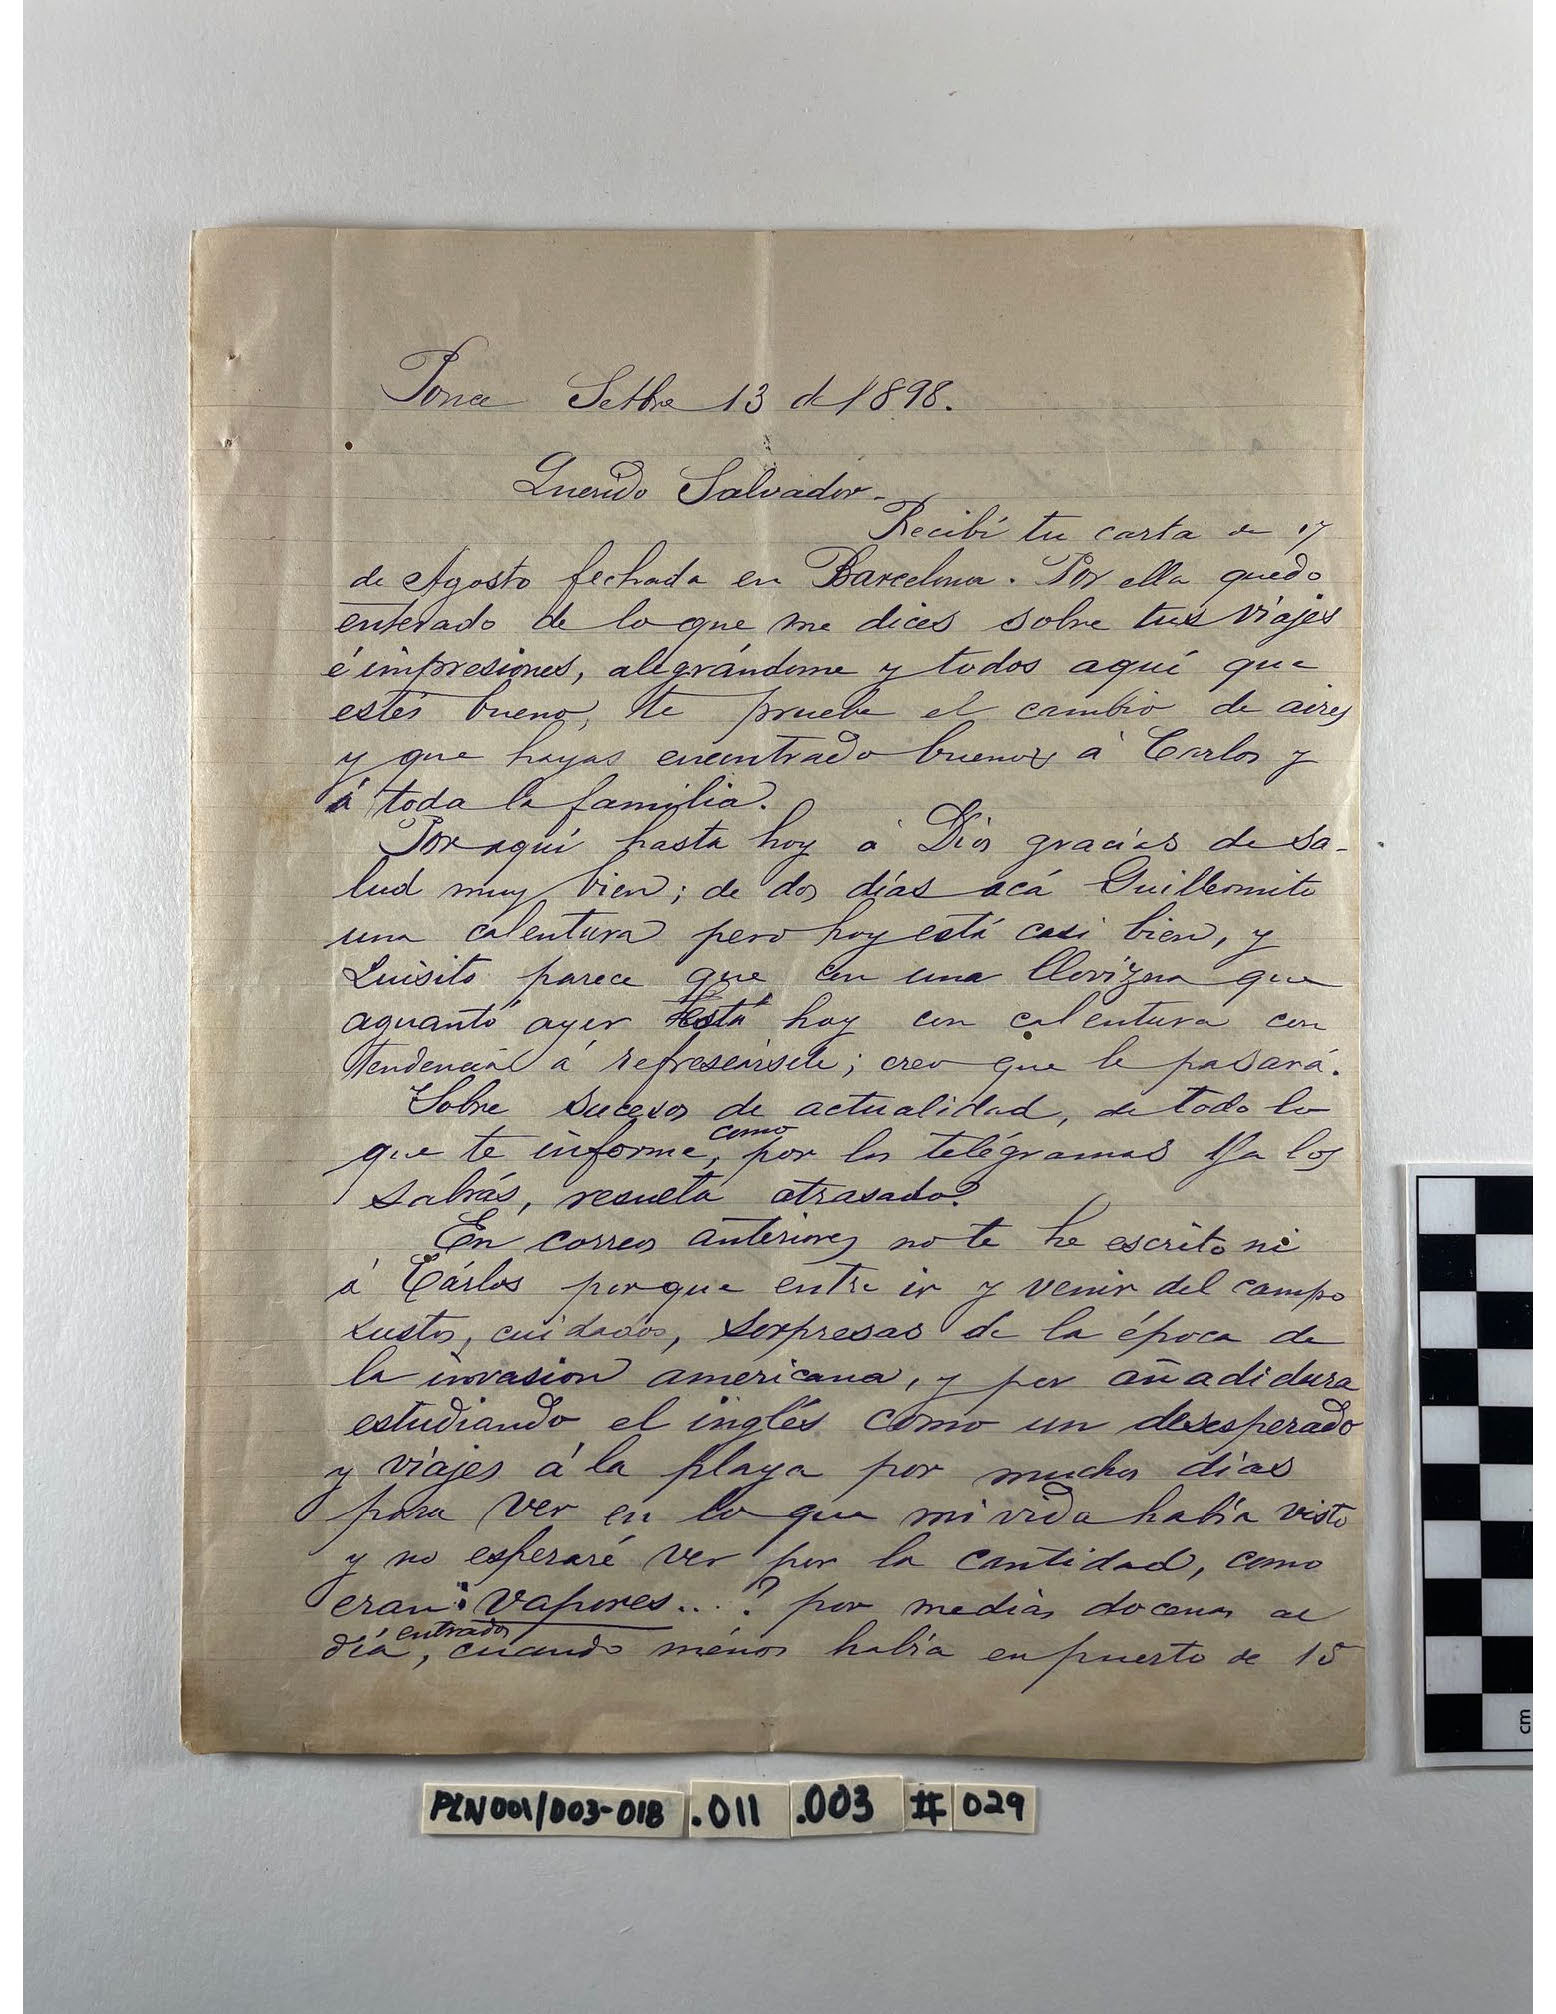 Ponce Setbre 13 de 1898.
Querido Salvador.
Recibí tu carta de 17
de Agosto fechada en Barcelona. Por ella quedo
enterado de lo que me dices sobre tus viajes
é impresiones, alegrándome y todos aquí que
estés bueno, te pruebe el cambio de aires
y que hayas encontrado buenos á Carlos y
á toda la familia.
Por aquí hasta hoy á Dios gracias de sa-
lud muy bien; de dos días acá Guillermito
una calentura pero hoy está casi bien, y
Luisito parece que con una llovizna que
aguantó ayer está hoy con calentura con
tendencia á ; creo que le pasará.
Sobre sucesos de actualidad, de todo lo
que te informe, como por los telégramas ya los
sabrás, resulta atrasado.
En correos anteriores no te he escrito ni
á Cárlos porque entre ir y venir del campo
sustos, cuidados, sorpresas de la época de
la invasion americana, y por añadidura
estudiando el inglés como un desesperado
y viajes á la playa por muchos días
para ver en lo que mi vida había visto
y no esperaré ver por la cantidad, como
eran: vapores...? por medias docenas al
día entrados, cuando ménos había en puerto de 15
PLN001/003-018 .011 .003 # 029
cm